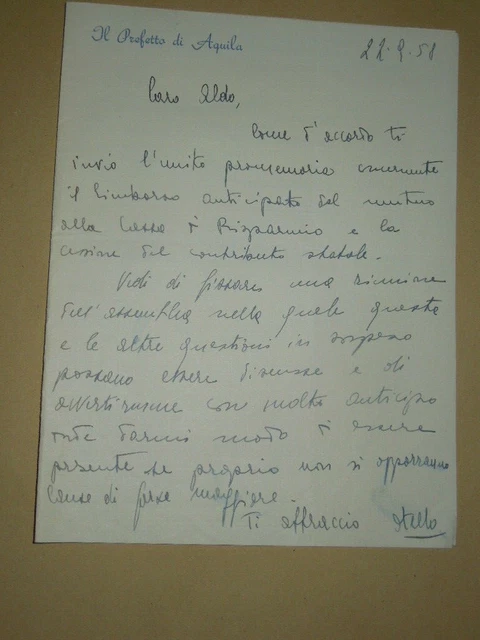 Il Prefetto di Aquila
22-9-58
Caro Aldo,
Come d'accordo ti
invio l'unito promemoria concernente
il rimborso anticipato del mutuo
alla Cassa di Risparmio e la
cessione del contributo statale.
Vedi di fissare una riunione
dell'assemblea nella quale questa
e le altre questioni in sospeso
possano essere discusse e di
avvertirmene con molto anticipo
onde darmi modo di essere
presente se proprio non si opporranno
cause di forza maggiore.
Ti abbraccio